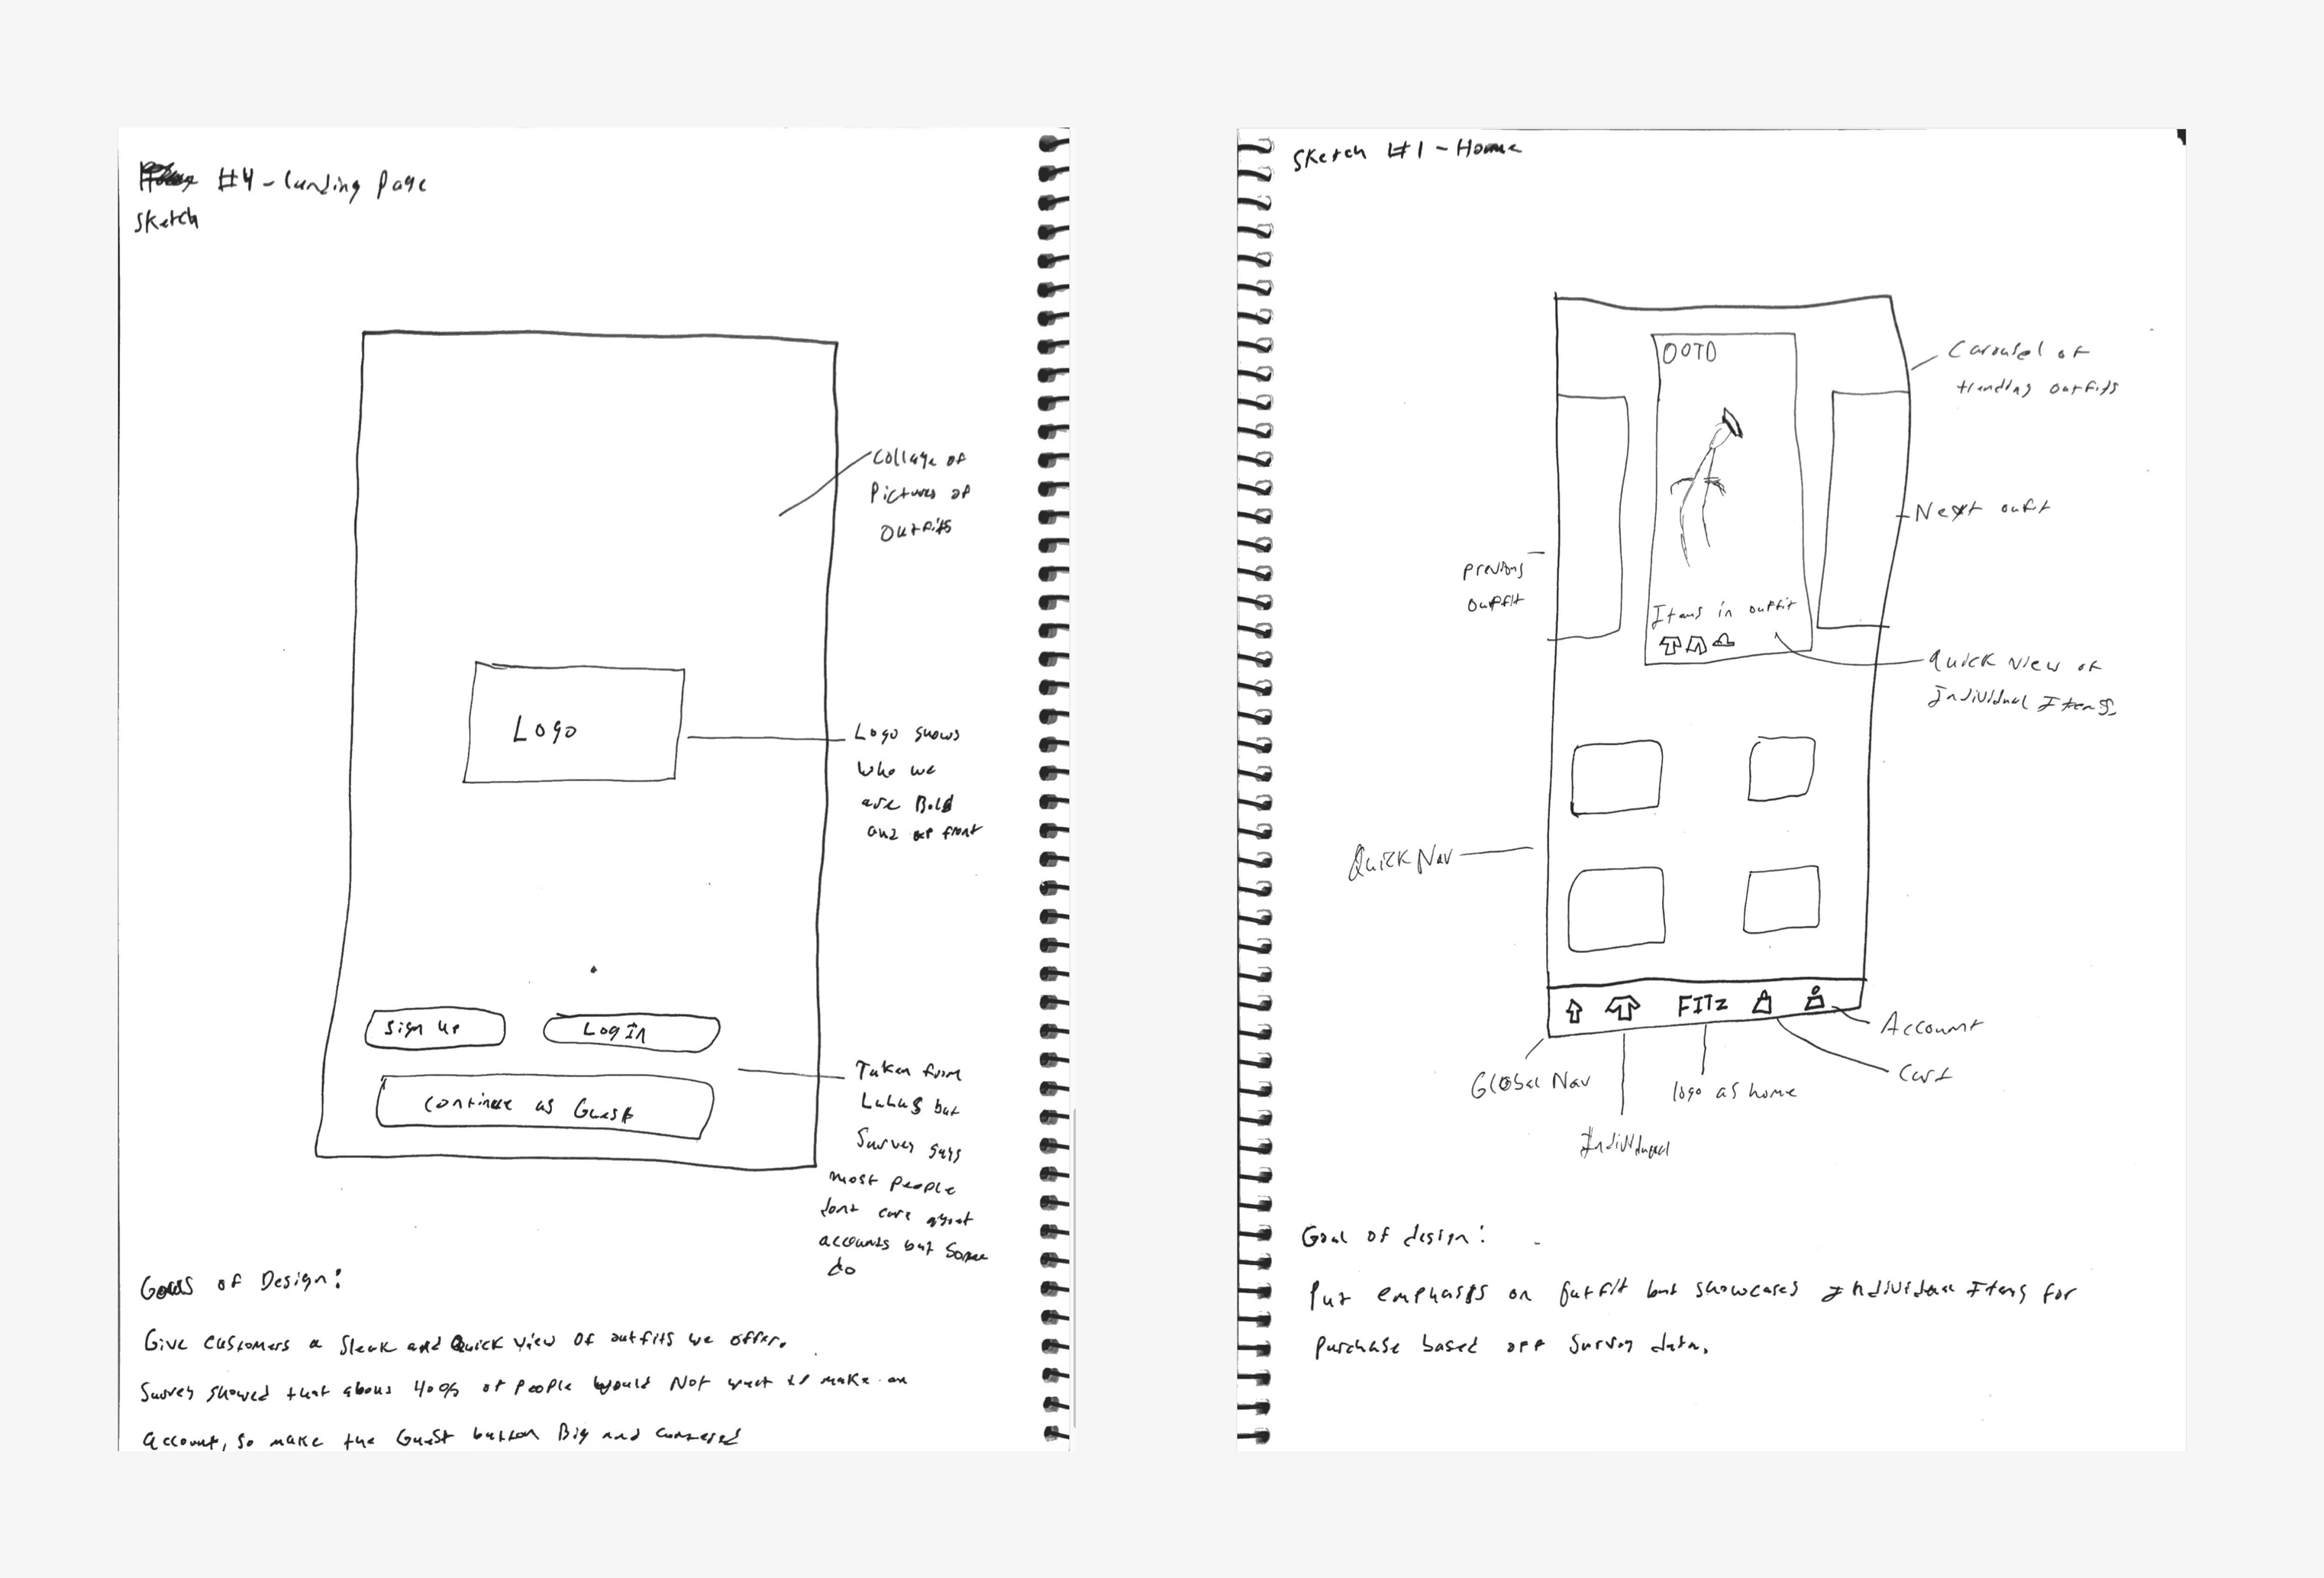 #4 - landing page
Sketch
Collage of
Pictures of
Outfits
Logo
Logo shows
who we
are Bold
and up front
Sign up
Log In
Continue as Guest
Taken from
Lulus but
Survey says
most people
dont care about
accounts but some
do
Goals of Design:
Give customers a sleek and Quick view of outfits we offer.
Survey showed that about 40% of people would Not want to make an
account, so make the Guest button Big and
Sketch #1 - Home
OOTD
Carousel of
trending outfits
Next outfit
previous
outfit
Items in outfit
Quick view of
Individual Items
Quick Nav
FITz
Account
Cart
Global Nav
logo as home
Individual
Goal of design:
Put emphasis on outfit but showcases Individual Items for
purchase based off survey data.